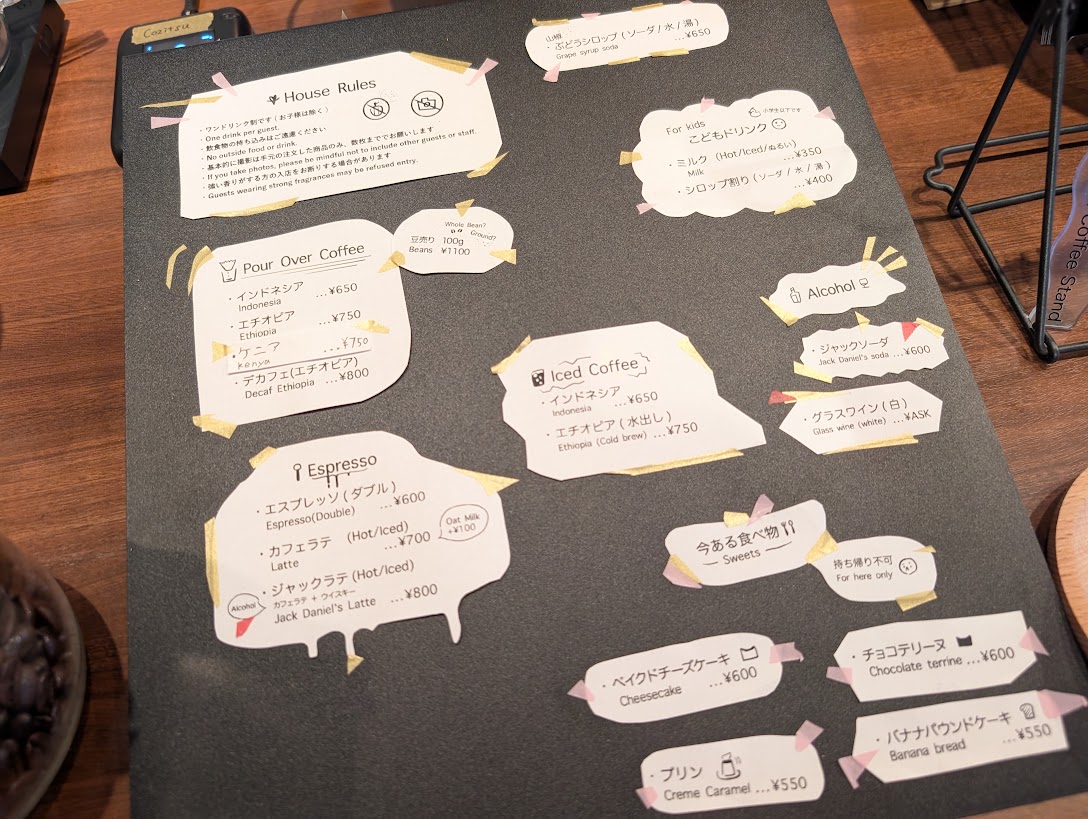 Cozitsu
山椒
・ぶどうシロップ (ソーダ / 水 / 湯)
Grape syrup soda ...¥650
House Rules
・ワンドリンク制です (お子様は除く)
・One drink per guest.
・飲食物の持ち込みはご遠慮ください
・No outside food or drink.
・基本的に撮影は手元の注文した商品のみ、数枚まででお願いします
・If you take photos, please be mindful not to include other guests or staff.
・強い香りがする方の入店をお断りする場合があります
・Guests wearing strong fragrances may be refused entry.
小学生以下です
For kids
こどもドリンク
・ミルク (Hot/Iced/ぬるい)
Milk ...¥350
・シロップ割り (ソーダ / 水 / 湯)
...¥400
Pour Over Coffee
・インドネシア ...¥650
Indonesia
・エチオピア ...¥750
Ethiopia
・ケニア ...¥750
kenya
・デカフェ(エチオピア)
Decaf Ethiopia ...¥800
Whole Bean?
Ground?
豆売り 100g
Beans ¥1100
Alcohol
・ジャックソーダ
Jack Daniel's soda ...¥600
・グラスワイン (白)
Glass wine (white) ...¥ASK
Iced Coffee
・インドネシア
Indonesia ...¥650
・エチオピア (水出し)
Ethiopia (Cold brew) ...¥750
Espresso
・エスプレッソ (ダブル)
Espresso(Double) ...¥600
・カフェラテ (Hot/Iced)
Latte ...¥700
Oat Milk
+¥100
・ジャックラテ (Hot/Iced)
カフェラテ + ウイスキー
Alcohol
Jack Daniel's Latte ...¥800
今ある食べ物
Sweets
持ち帰り不可
For here only
・ベイクドチーズケーキ
Cheesecake ...¥600
・チョコテリーヌ
Chocolate terrine ...¥600
・プリン
Creme Caramel ...¥550
・バナナパウンドケーキ
Banana bread ...¥550
Coffee Stand